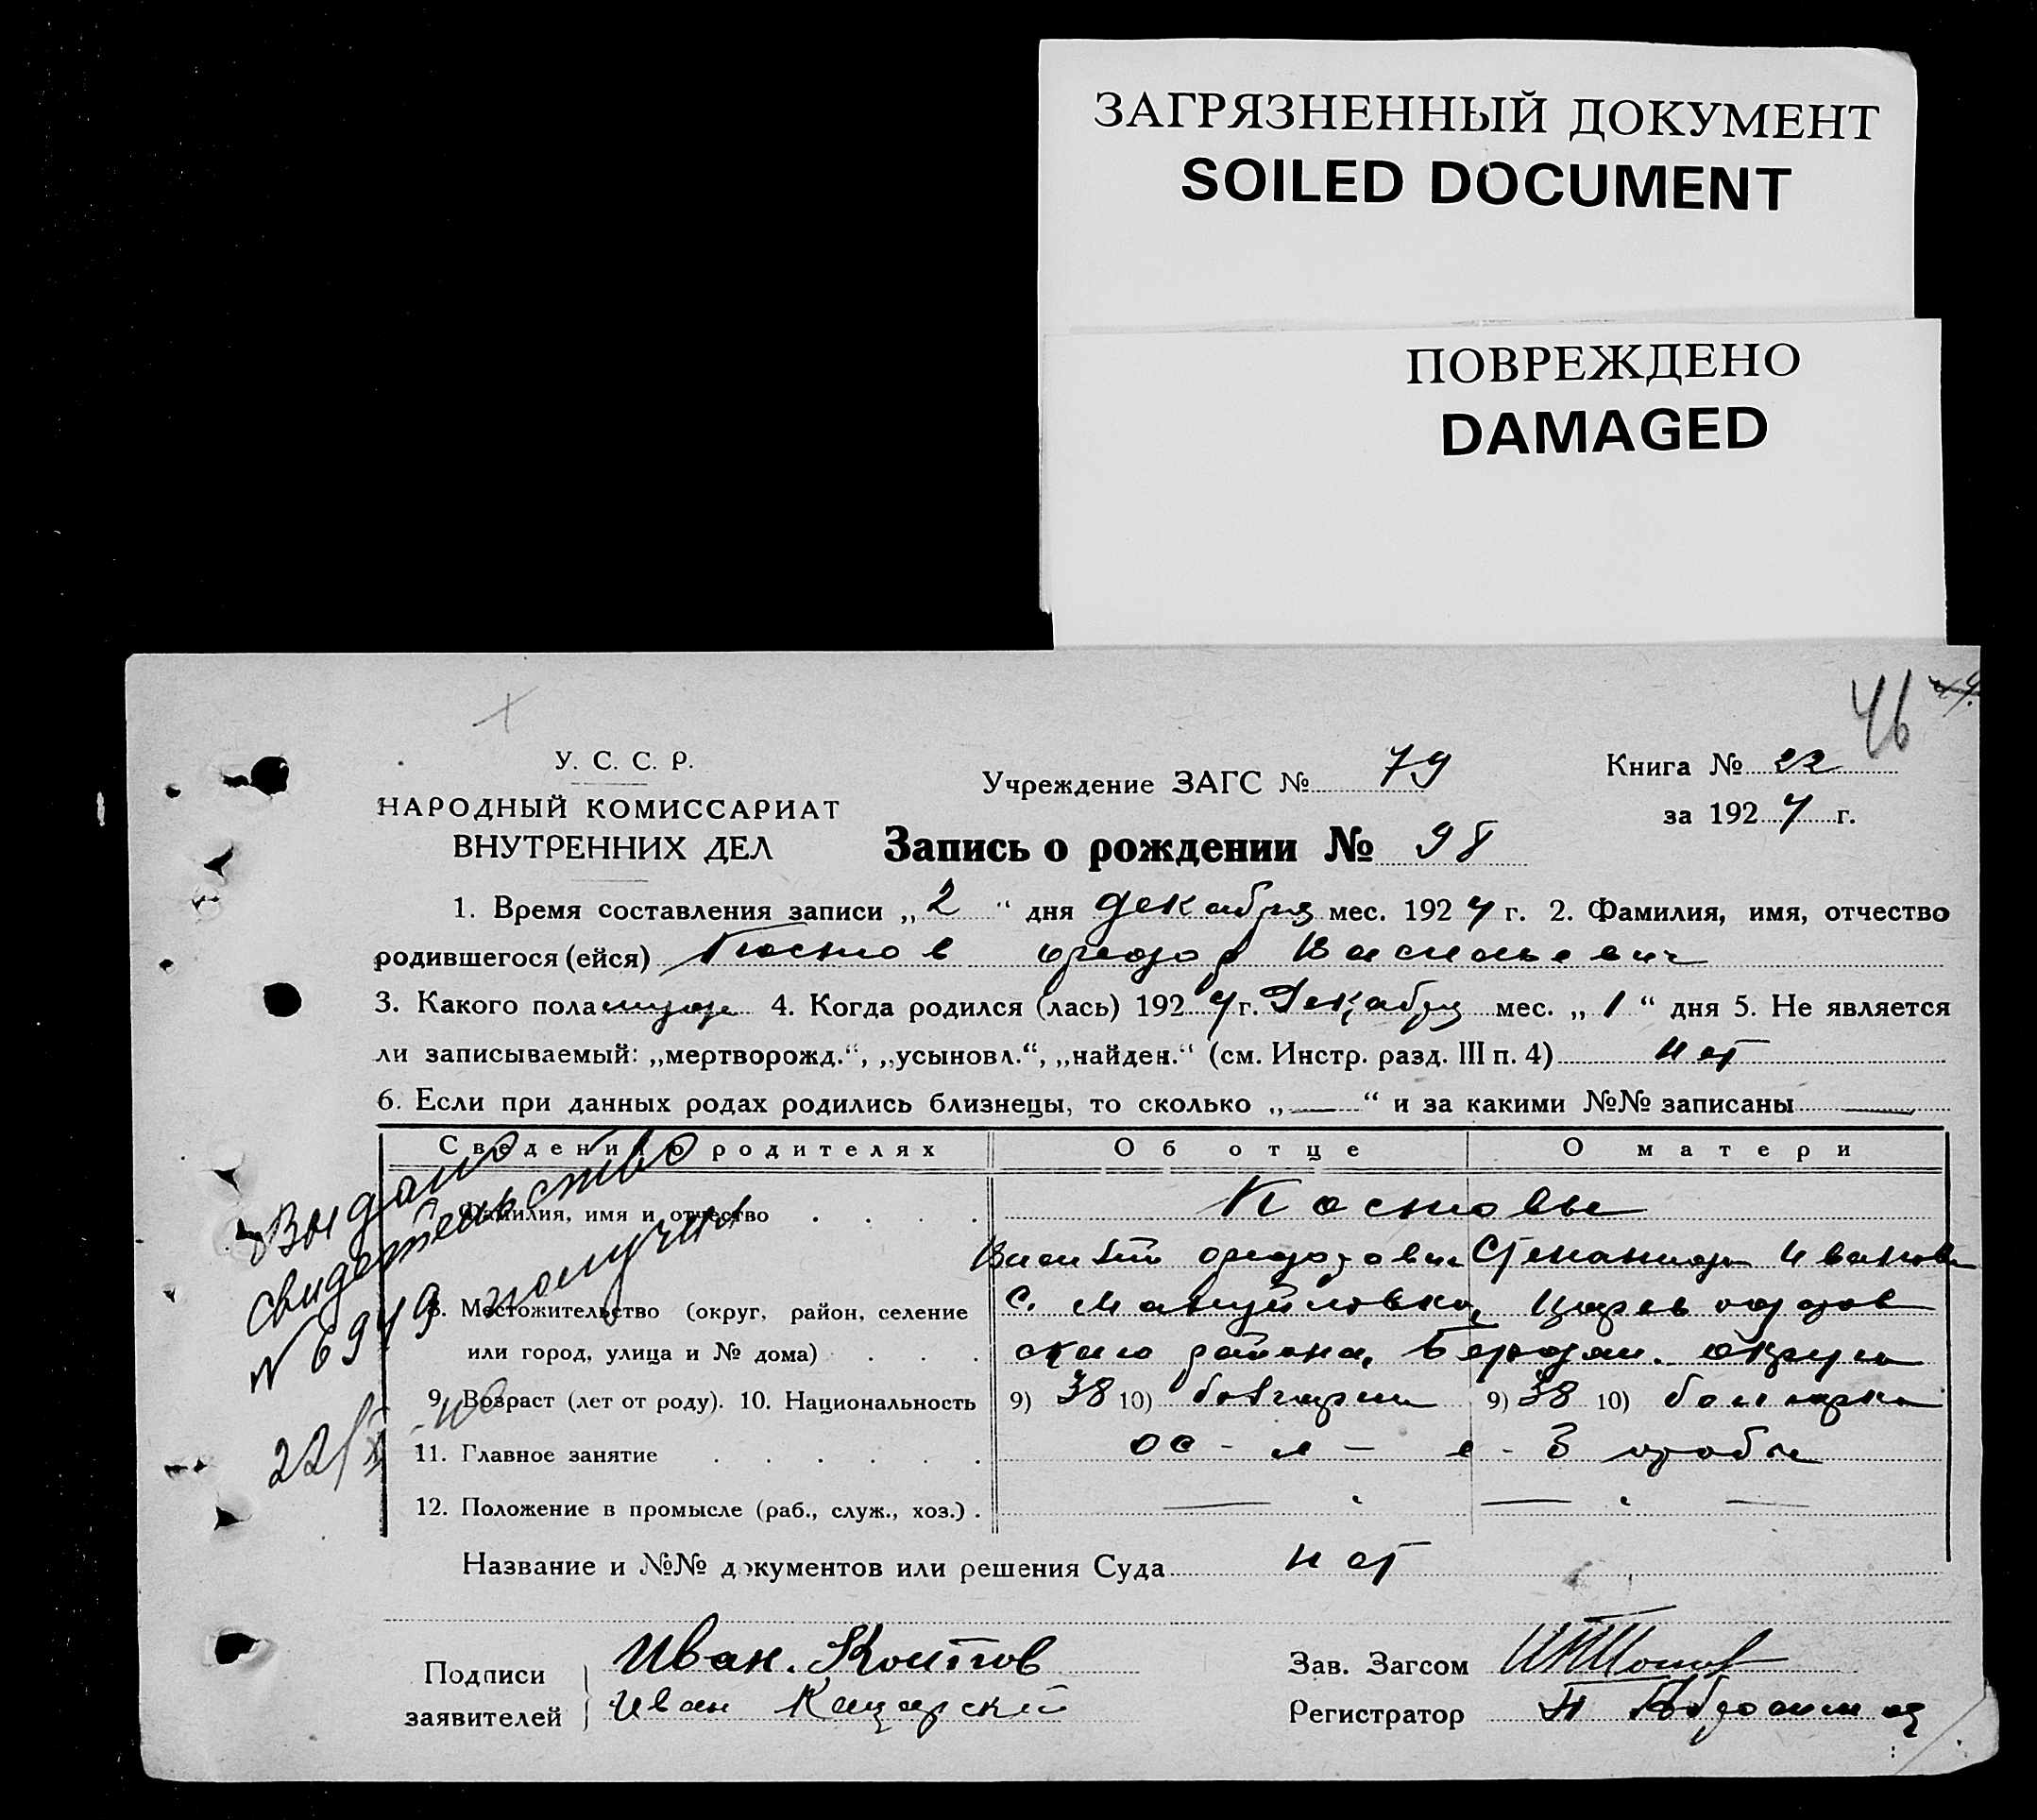 ЗАГРЯЗНЕННЫЙ ДОКУМЕНТ
SOILED DOCUMENT
ПОВРЕЖДЕНО
DAMAGED
46
У. С. С. Р.
НАРОДНЫЙ КОМИССАРИАТ
ВНУТРЕННИХ ДЕЛ
Учреждение ЗАГС № 79
Книга № 22
за 1924 г.
Запись о рождении № 98
1. Время составления записи „2“ дня декабря мес. 1924 г. 2. Фамилия, имя, отчество
родившегося (ейся) Костов Федор Васильевич
3. Какого пола 4. Когда родился (лась) 1924 г. Декабря мес. „1“ дня 5. Не является
ли записываемый: „мертворожд.“, „усыновл.“, „найден.“ (см. Инстр. разд. III п. 4) нет
6. Если при данных родах родились близнецы, то сколько „—“ и за какими №№ записаны —
Сведения о родителях Об отце О матери
Фамилия, имя и отчество Костовы
Федорович Степанида Иванов
8. Местожительство (округ, район, селение с. Мануйловка, Цареводаров
или город, улица и № дома) ского района, Бердян. округа
9. Возраст (лет от роду). 10. Национальность 9) 38 10) болгарин 9) 38 10) болгарка
11. Главное занятие
12. Положение в промысле (раб., служ., хоз.)
Название и №№ документов или решения Суда нет
Подписи
заявителей
Иван. Костов
Иван Кацарский
Зав. Загсом
Регистратор
Выдано
свидетельство
№ 6949 получил
22/X